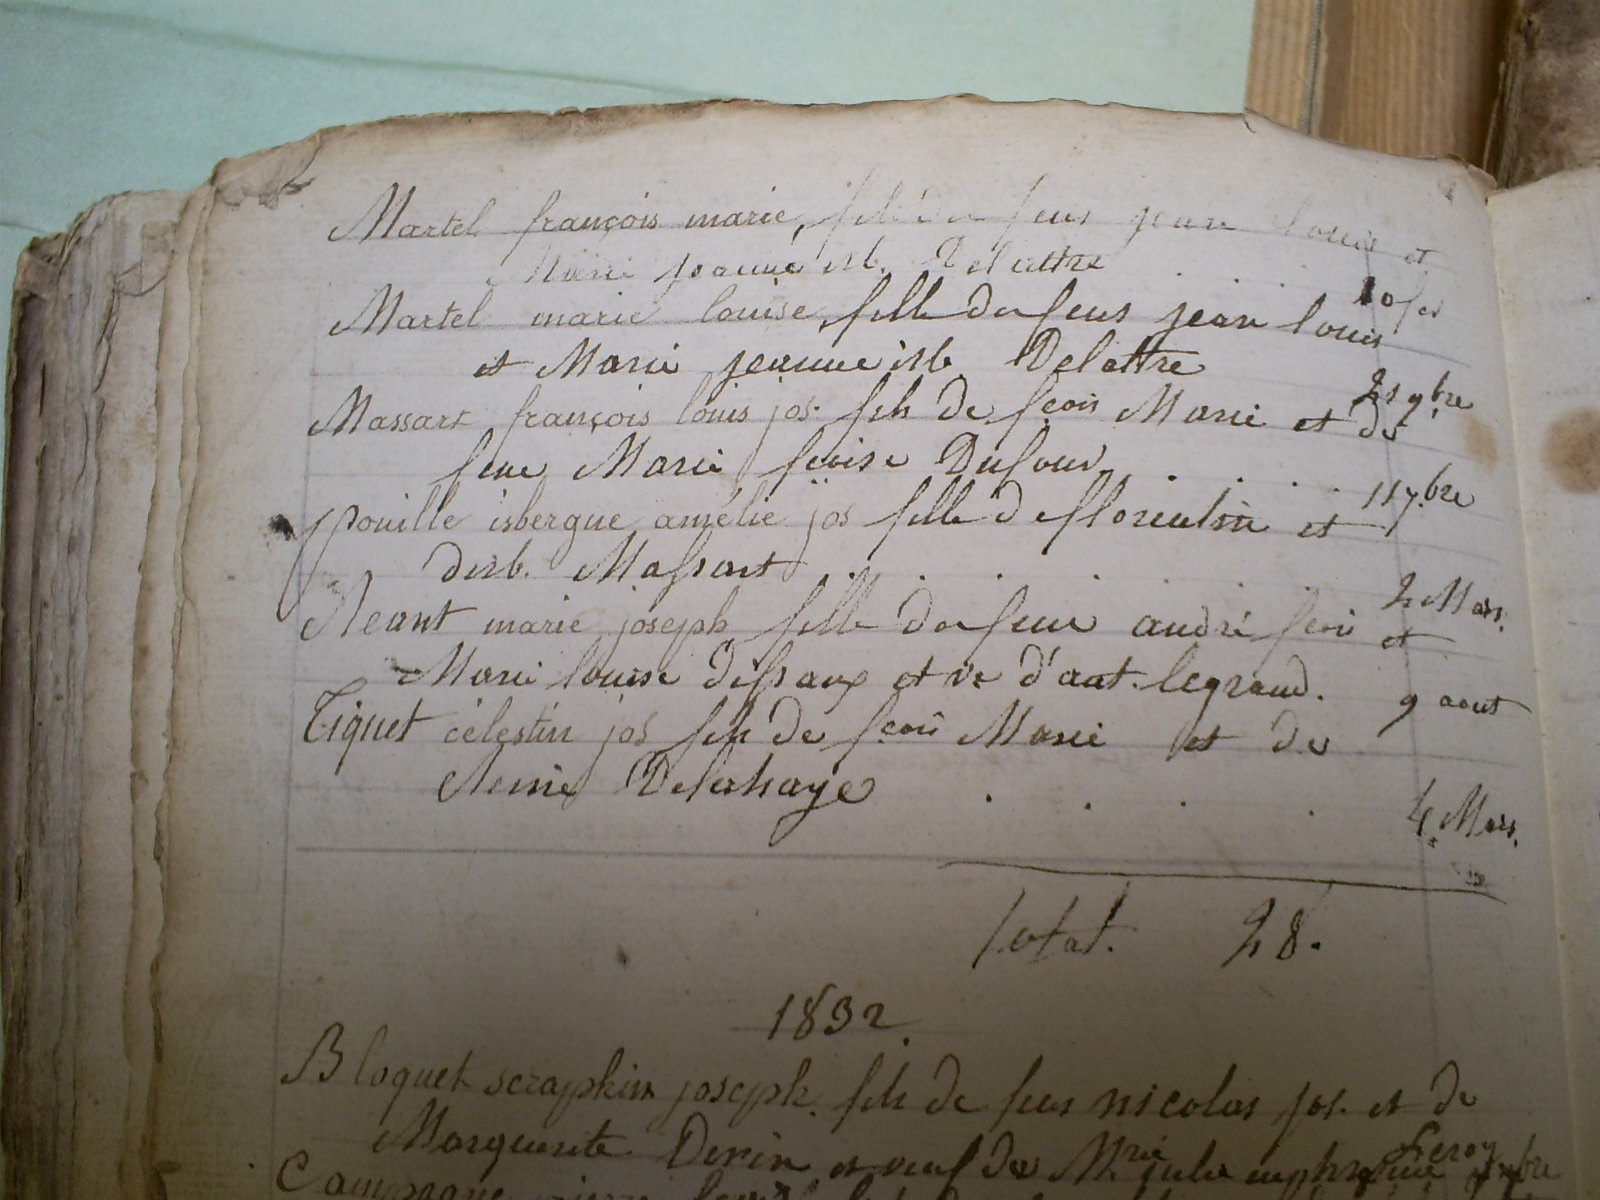 Martel françois marie, fils de feus jean louis et
Marie jeanne isb. Delattre
10 fer
Martel marie louise, fille de feus jean louis
et Marie jeanne isb. Delattre
21 9bre
Massart françois louis jos. fils de fçois Marie et de
feue Marie fçoise Dufour
11 7bre
pouille isbergue amélie jos fille de florentin et
d'isb. Massart
2 Mars.
Neant marie joseph fille de feue andré fçois et
Marie louise Dissaux et ve d'ant. legrand.
9 aout
Tiquet célestin jos fils de fçois Marie et de
Delahaye
4 Mars.
Total. 28.
1832
Bloquet seraphin joseph. fils de feus nicolas jos. et de
Marguerite et veuf de Mrie julie Leroy